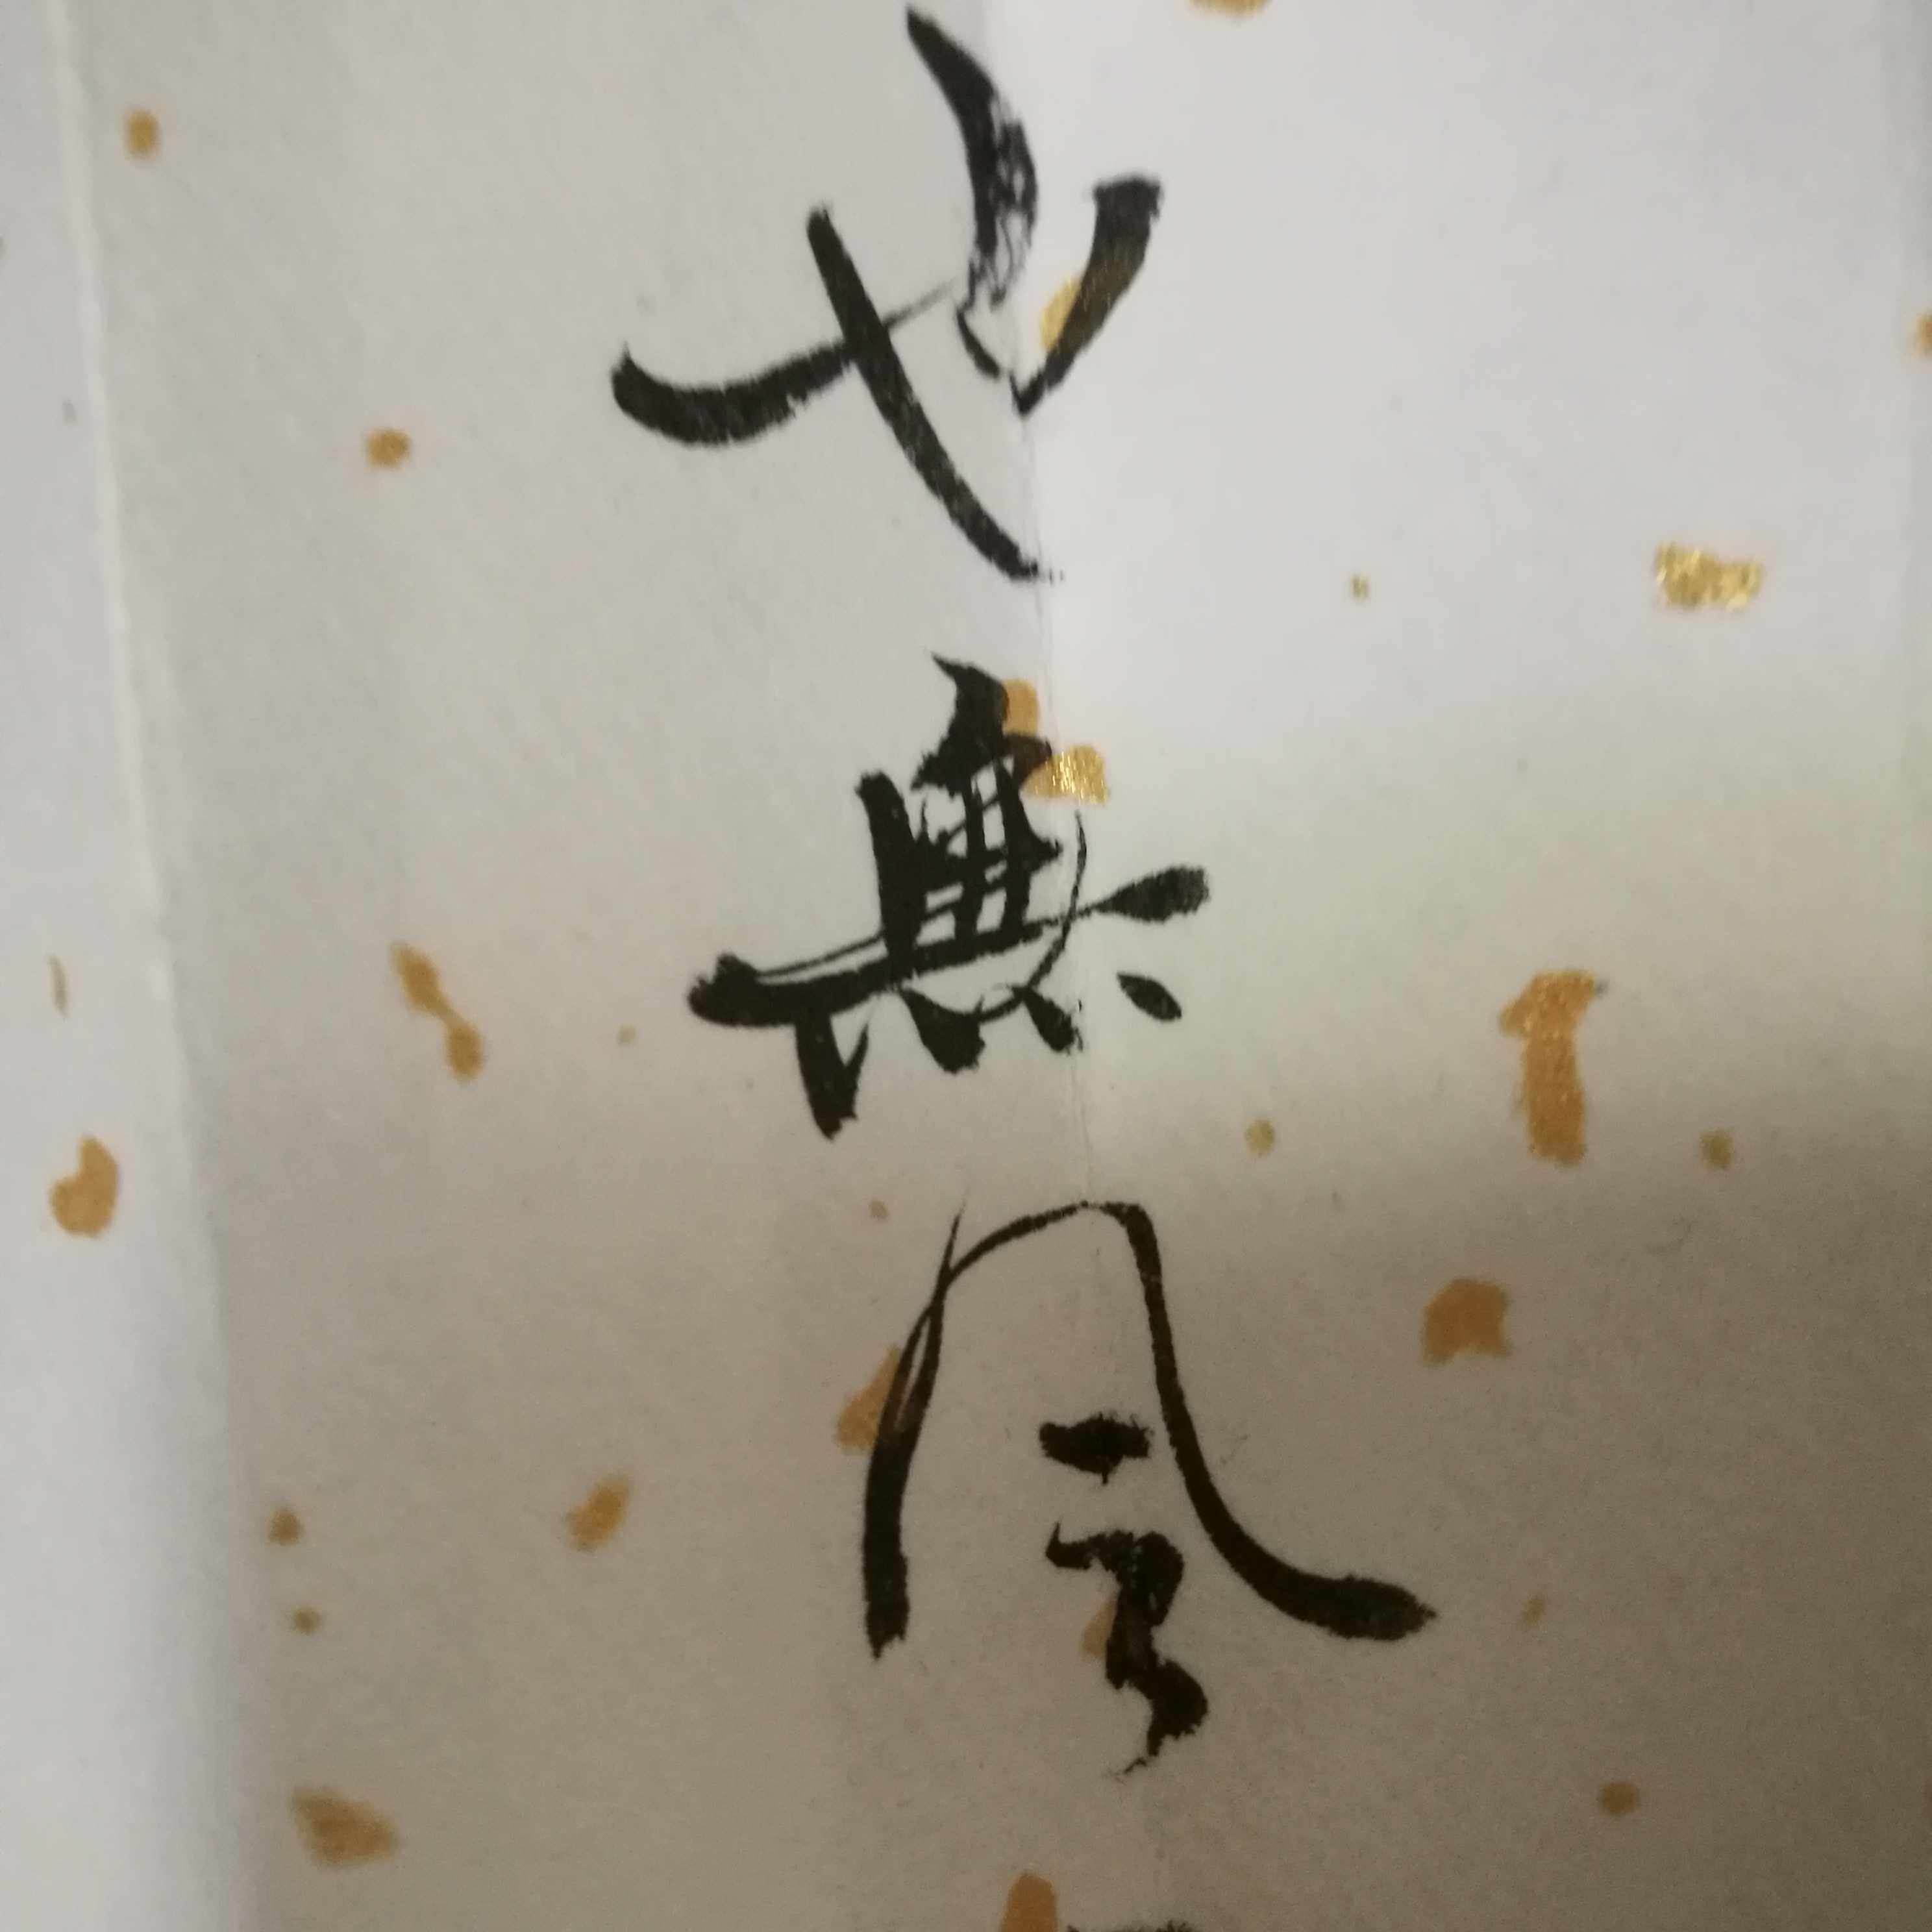 也無風